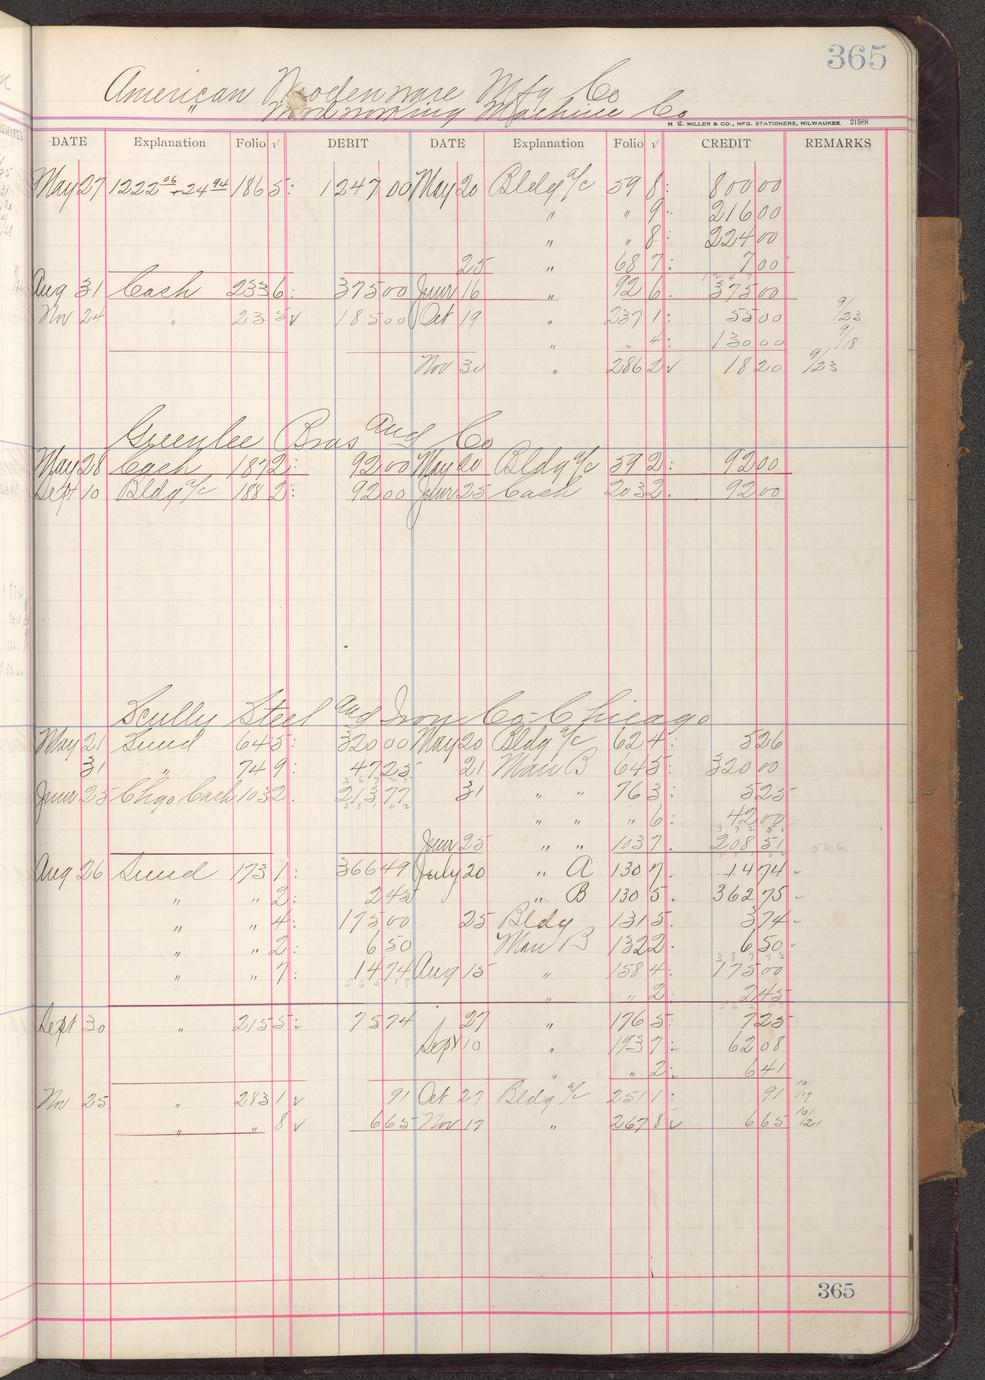 365
American Woodenware Mfg Co
" Woodworking Machine Co
H. C. MILLER & CO., MFG. STATIONERS, MILWAUKEE 21588
DATE Explanation Folio √ DEBIT DATE Explanation Folio √ CREDIT REMARKS
May 27 1222 06 + 24 94 186 5: 1247 00 May 20 Bldg a/c 59 8: 800 00
" " 9: 216 00
" " 8: 224 00
25 " 68 7: 7 00
Aug 31 Cash 233 6: 375 00 June 16 " 92 6. 375 00
Nov 24 " 23 5 √ 185 00 Oct 19 " 237 1: 55 00 9/23
" " 4: 130 00 9/18
Nov 30 " 286 2 √ 18 20 9/23
Greenlee Bros and Co
May 28 Cash 187 2: 92 00 May 20 Bldg a/c 59 2: 92 00
Sept 10 Bldg a/c 188 2: 92 00 June 25 Cash 203 2. 92 00
Scully Steel and Iron Co - Chicago
May 21 Sund 64 5: 320 00 May 20 Bldg a/c 62 4: 5 26
31 " 74 9: 47 25 21 Man B 64 5: 320 00
June 25 Chgo Cash 103 2. 213 77 31 " " 76 3: 5 25
" " " 6: 42 00
June 25 " " 103 7. 208 51 526
Aug 26 Sund 173 1: 366 49 July 20 " A 130 7. 14 74
" " 2: 2 45 " B 130 5. 362 75
" " 4: 175 00 25 Bldg 131 5. 3 74
" " 2: 6 50 Man B 132 2. 6 50
" " 7: 14 74 Aug 15 " 158 4: 175 00
" " 2: 2 45
Sept 30 " 215 5: 75 74 " 27 " 176 5: 7 25
Sept 10 " 193 7: 62 08
" " 2: 6 41
Nov 25 " 283 1 √ 91 Oct 27 Bldg a/c 251 1: 91 10/17
" " 8 √ 6 65 Nov 17 " 267 8 √ 6 65
365